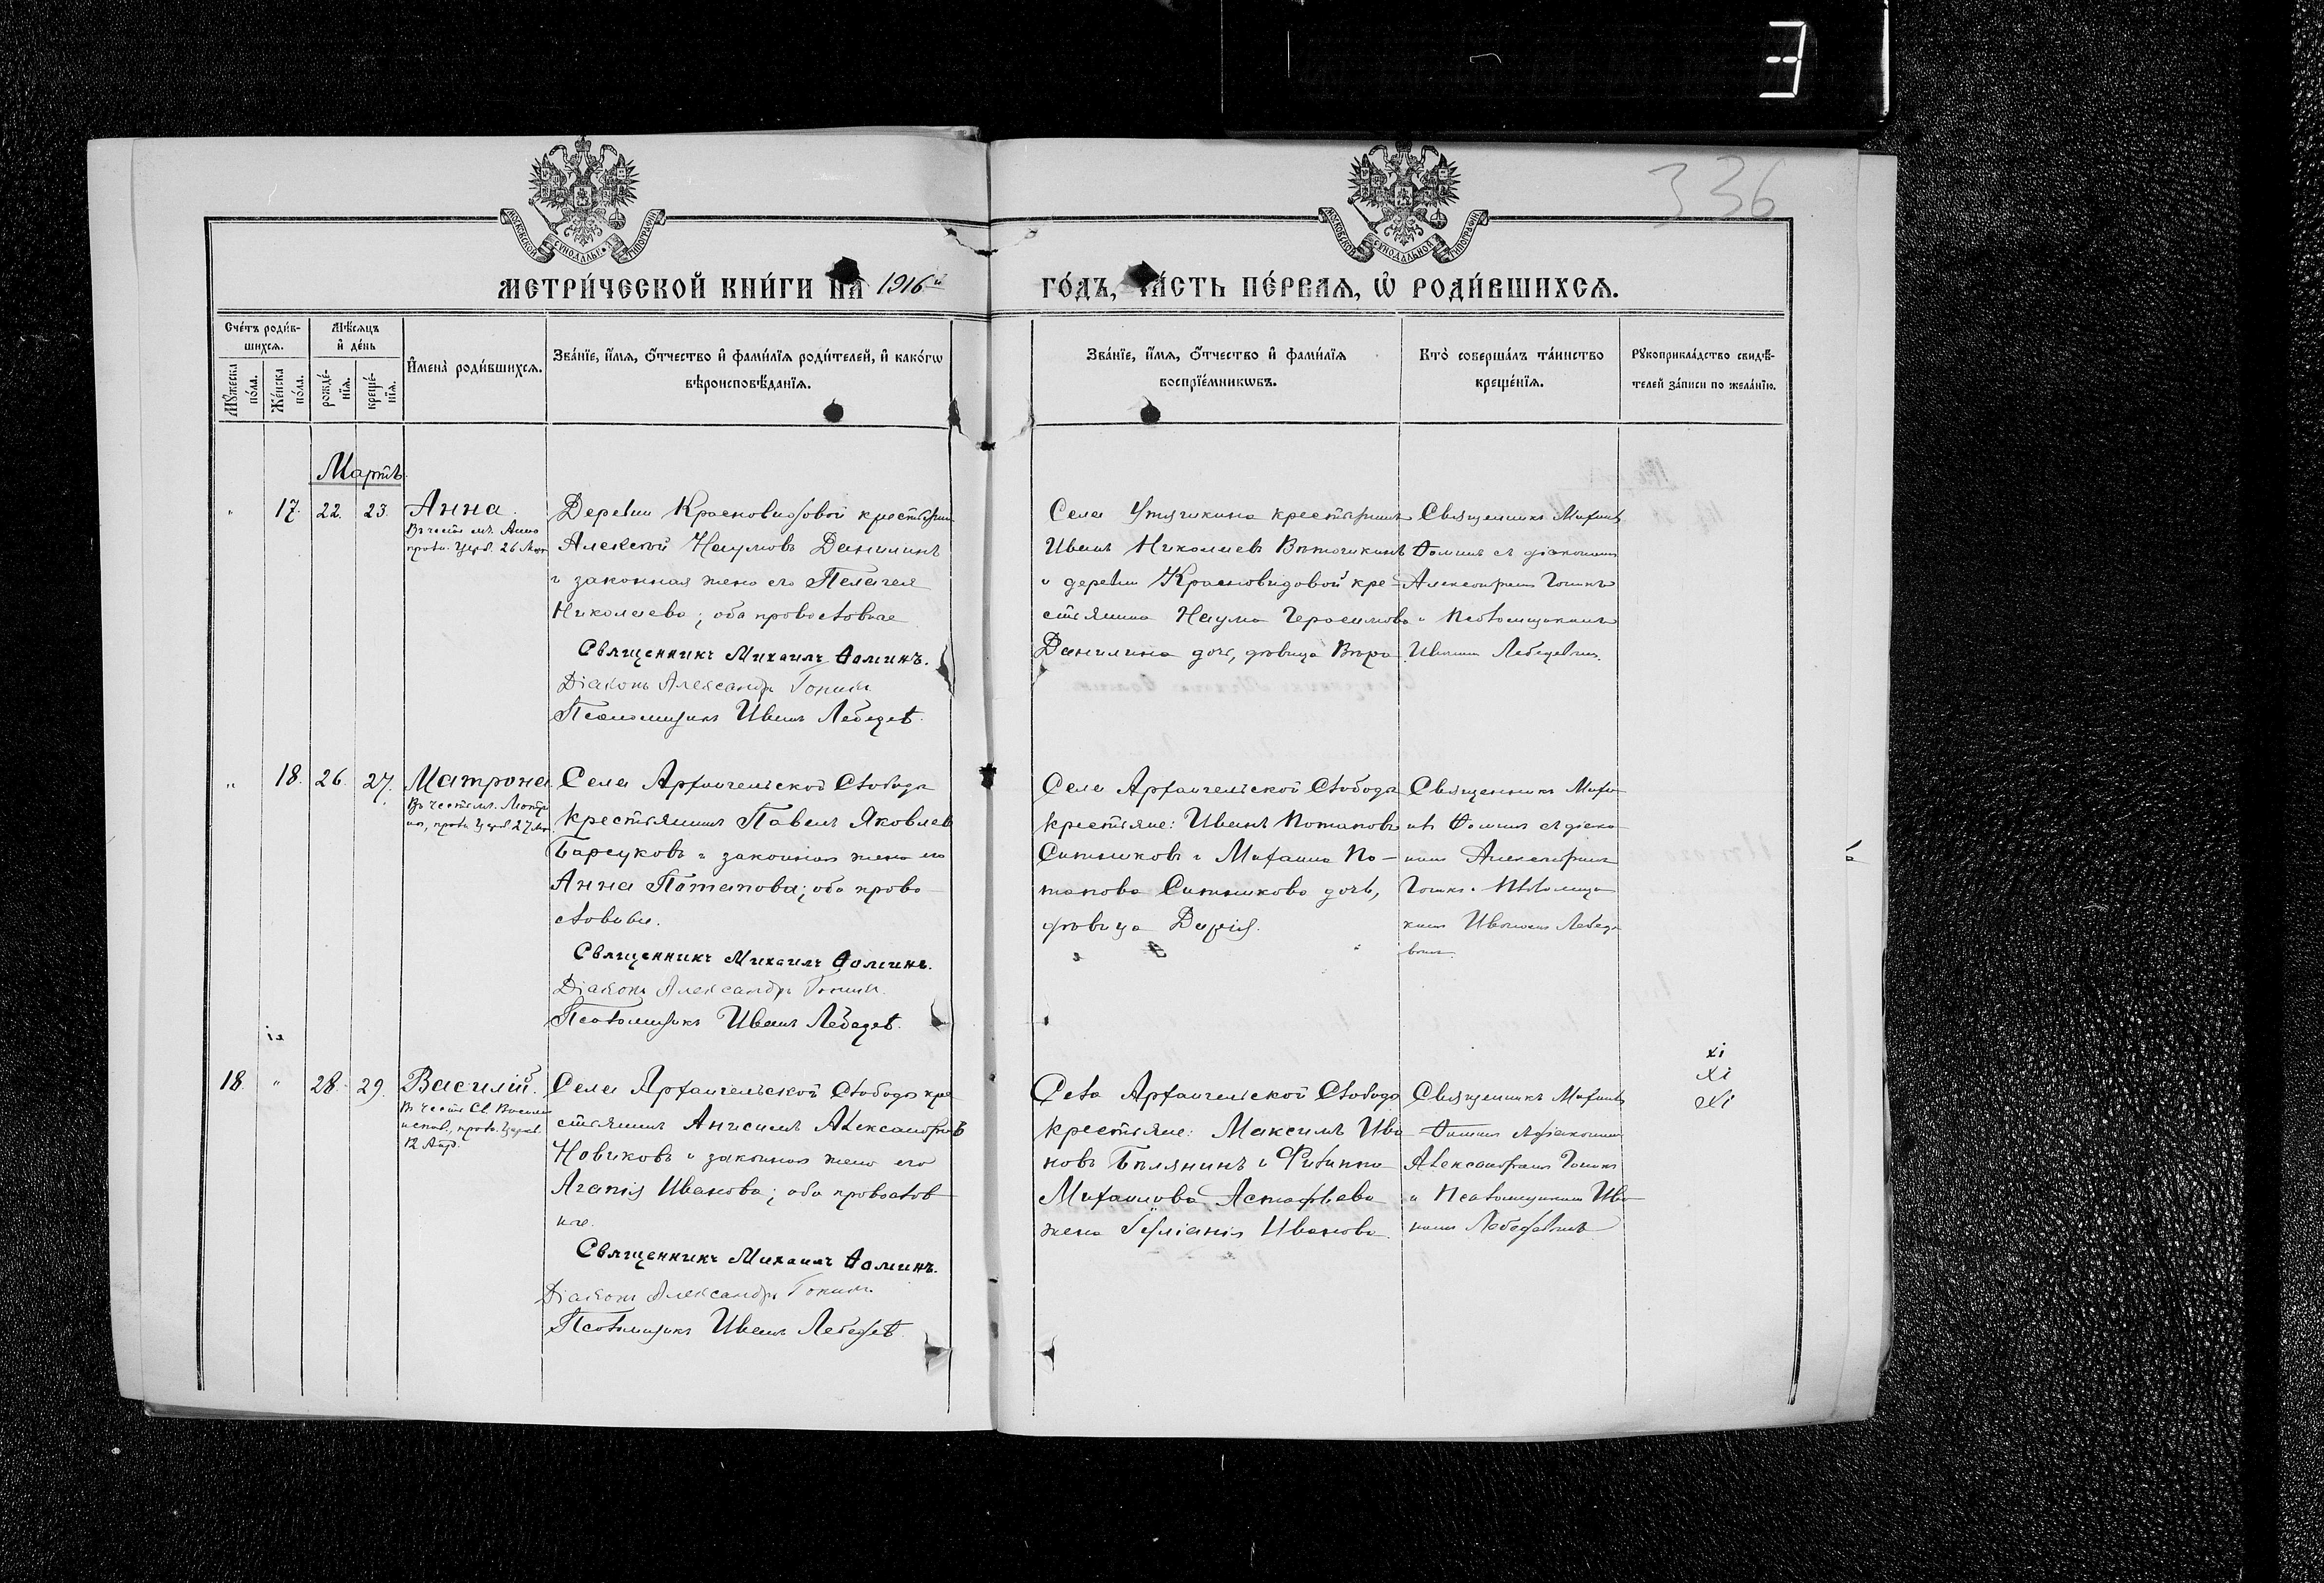 336
МОСКОВСКОЙ СѴНОДАЛЬНОЙ ТИПОГРАФІИ
МОСКОВСКОЙ СѴНОДАЛЬНОЙ ТИПОГРАФІИ
МЕТРИ́ЧЕСКОЙ КНИ́ГИ НА 1916й ГО́ДЪ, ЧА́СТЬ ПЕ́РВАЯ, Ѡ҆ РОДИ́ВШИХСЯ.
Сче́тъ роди́в-
шихся.
Мꙋ́жеска по́ла.
Же́нска по́ла.
Мѣ́сяцъ
и҆ де́нь
рожде́-
нїя.
креще́-
нїя.
И҆мена̀ роди́вшихся.
Зва́нїе, и҆́мя, ѻ҆́тчество и҆ фами́лїя роди́телей, и҆ како́гѡ
вѣроисповѣ́данїя.
Зва́нїе, и҆́мя, ѻ҆́тчество и҆ фами́лїя
воспрїе́мникѡвъ.
Кто̀ соверша́лъ та́инство
креще́нїя.
Рꙋкоприкла́дство свидѣ́-
телей за́писи по жела́нїю.
Мартъ
" 17. 22. 23. Анна.
Въ честь мч. Анны
Деревни Красновидовой крестьянин
Алексей Наумовъ Данилинъ
и законная жена его Пелагея
Николаева; оба православные
Священникъ Михаилъ Ѳоминъ.
Діаконъ Александръ
Псаломщикъ Иванъ Лебедев.
Села крестьянинъ
Иванъ Николаевъ
и деревни Красновидовой кре-
стьянина Наума Герасимова
Данилина дочь, дѣвица Вѣра.
Священникъ Михаилъ
Ѳоминъ съ діакономъ
Александромъ
и Псаломщикомъ
Иваномъ Лебедевымъ.
" 18. 26. 27. Матрона
Села Архангельской Слободы
крестьянинъ Павелъ Яковлев
Барсуковъ и законная жена его
Анна Потапова; оба право-
славные.
Священникъ Михаилъ Ѳоминъ.
Діаконъ Александръ
Псаломщикъ Иванъ Лебедев.
Села Архангельской Слободы
крестьяне: Иванъ Потаповъ
Ситниковъ и Михаила По-
тапова Ситникова дочь,
дѣвица Дарія.
Священникъ Миха-
илъ Ѳоминъ съ діако-
номъ Александромъ
и Псаломщи-
комъ Иваномъ Лебеде-
вымъ
18. " 28. 29. Василій.
Въ честь Св. Василія
испов., праз. Церк.
12 Апр.
Села Архангельской Слободы кре-
стьянинъ Анисимъ Александровъ
Новиковъ и законная жена его
Агапія Иванова; оба православ-
ные.
Священникъ Михаилъ Ѳоминъ.
Діаконъ Александръ
Псаломщикъ Иванъ Лебедев
Села Архангельской Слободы
крестьяне: Максимъ Ива-
новъ Бѣлянинъ и Филиппа
Михайлова Астафьева
жена Иванова.
Священникъ Михаилъ
Ѳоминъ съ діакономъ
Александромъ
и Псаломщикомъ Ива-
номъ Лебедевымъ